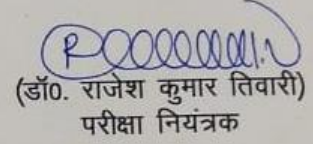 (डॉ0. राजेश कुमार तिवारी)
परीक्षा नियंत्रक